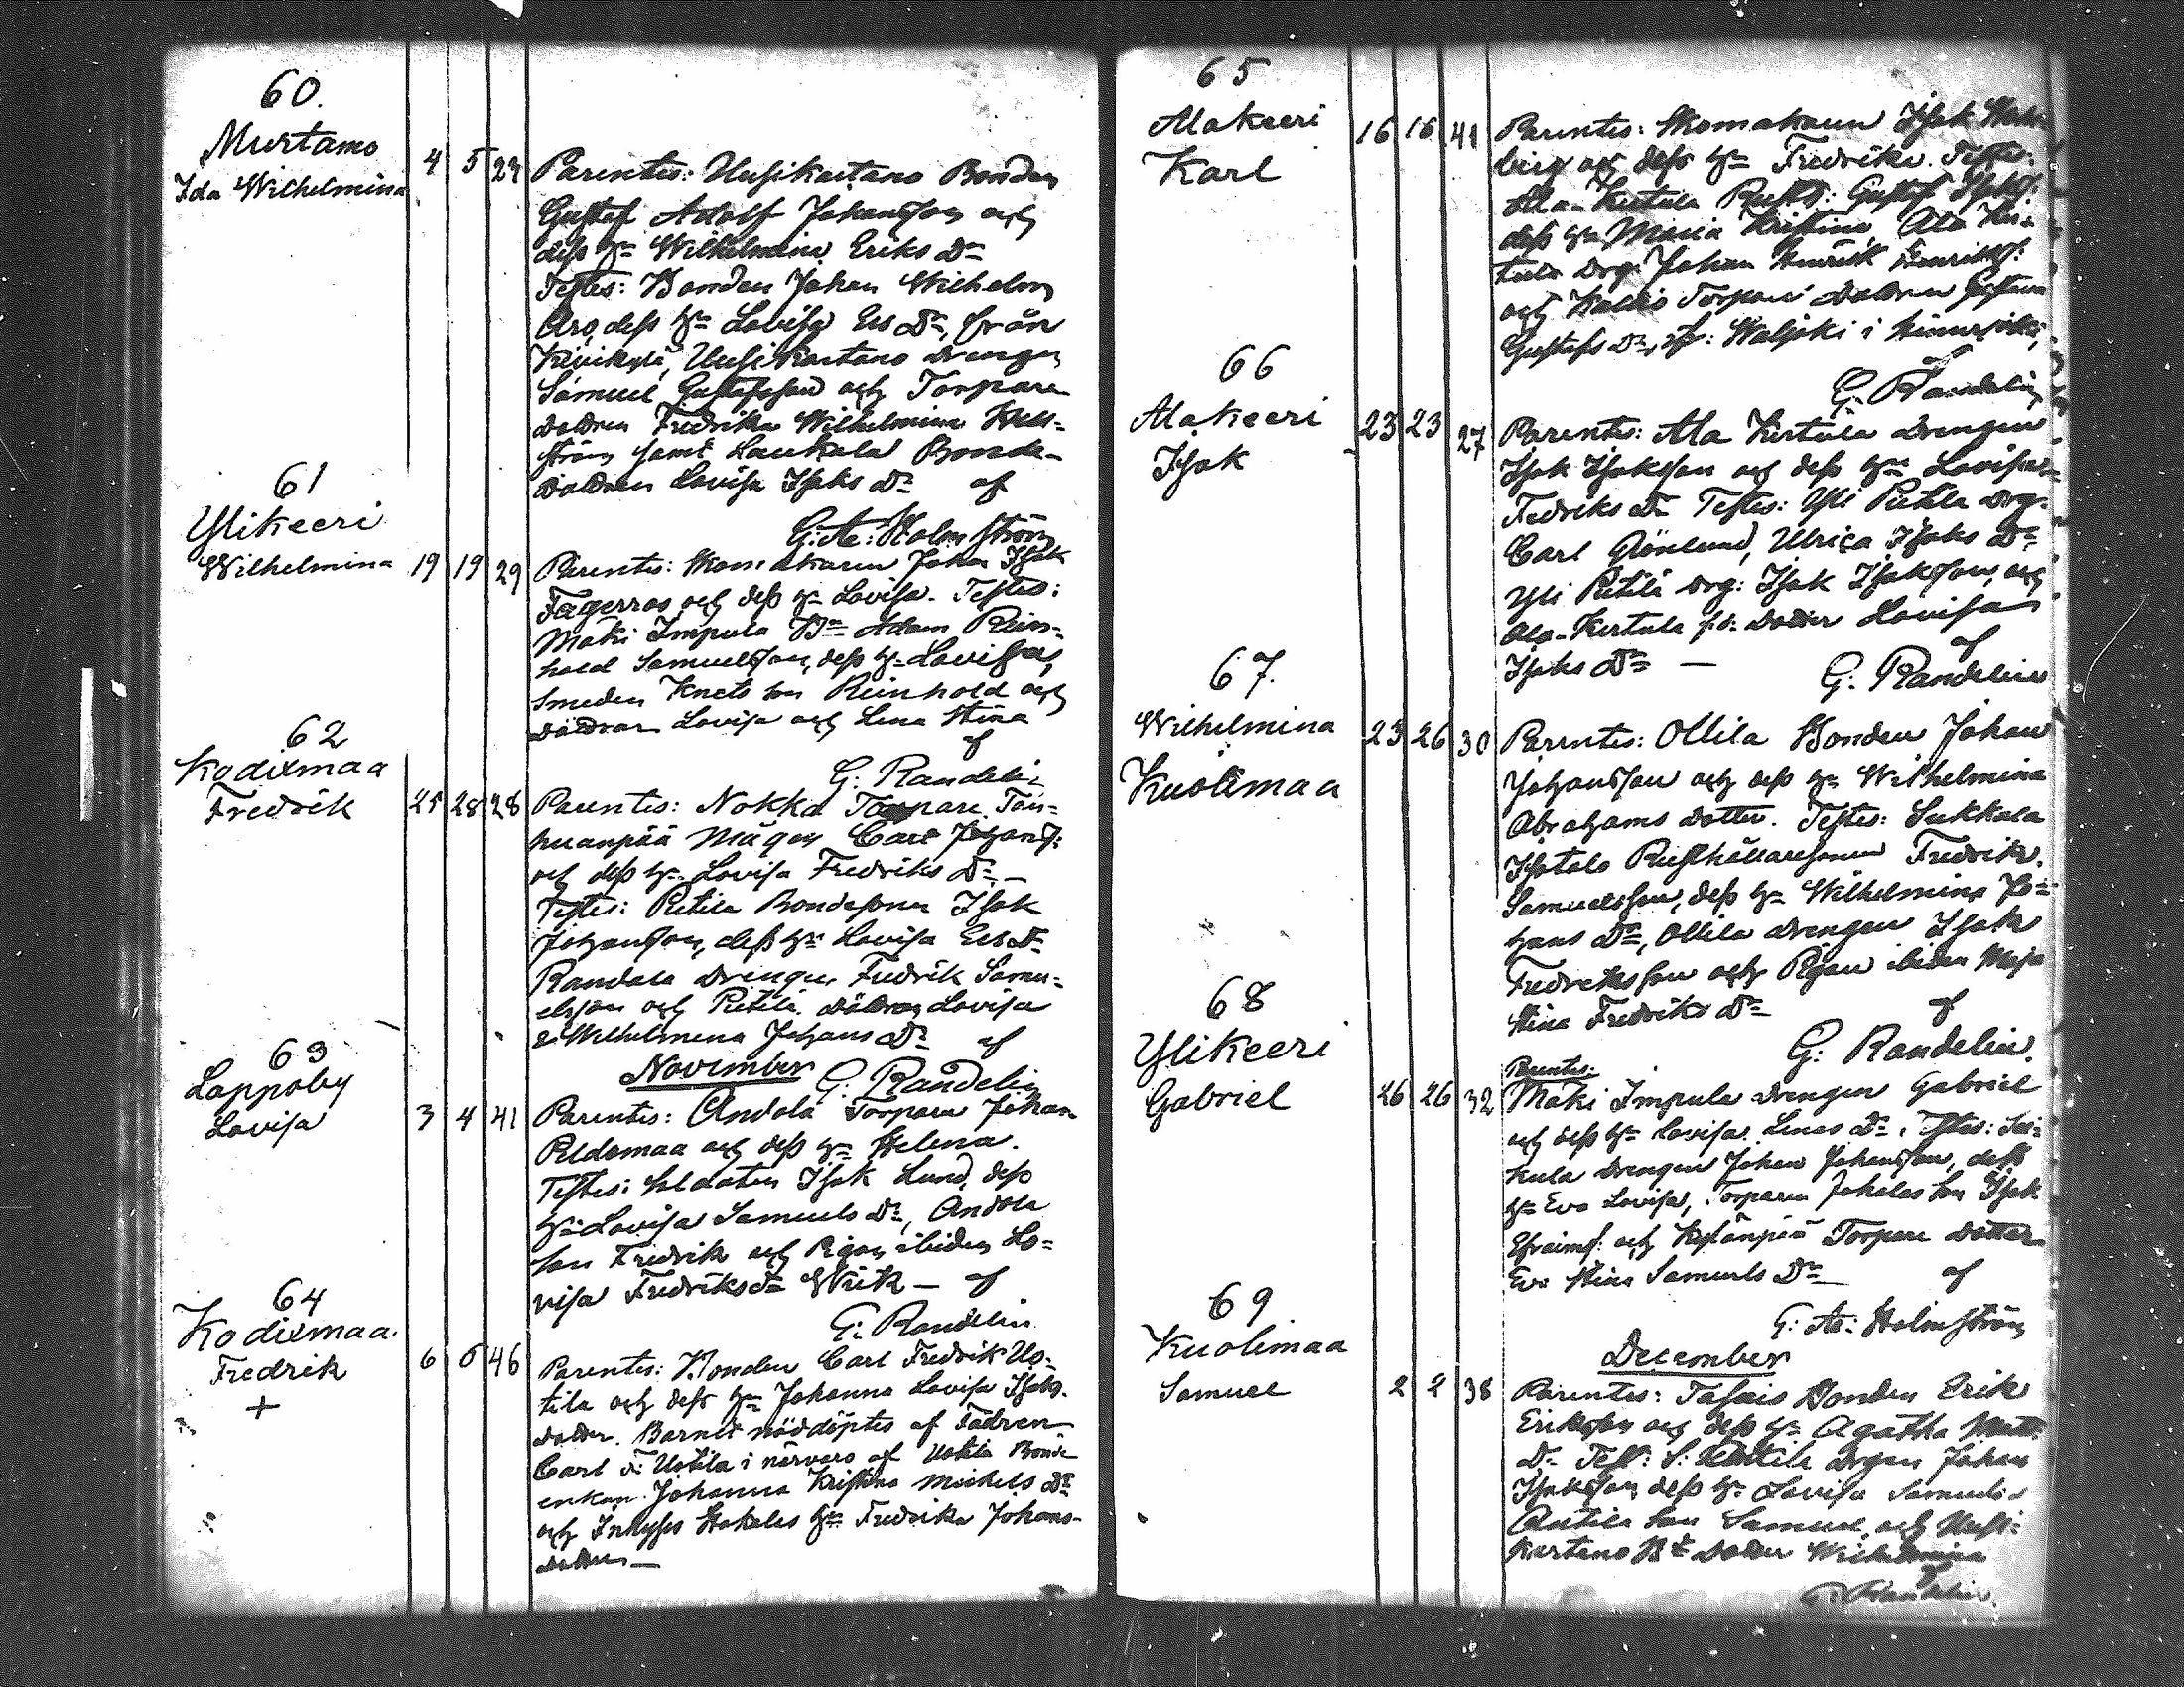 60.
Murtamo
Ida Wilhelmina
4 5 29 Parentes: Uusikartano Bonden
Gustaf Adolf Johansson och
dess h:u Wilhelmina Eriks D:r
Testes: Bonden Johan Wilhelm
Aro, dess h:u Lovisa Ers D:r, från
Uusikartano Drengen
Samuel Gustafsson och Torpare
Dottren Fredrika Wilhelmina Hell-
ström samt Laukola Bonde-
Dottren Lovisa Isaks D:r af
G: A: Holmström
61
Ylikeeri
Wilhelmina
19 19 29 Parentes: Skomakaren Johan Isak
Fagerroos och dess h:u Lovisa. Testes:
Mäki Impola B:n Adam Rein-
hold Samuelsson, dess h:u Lovisa,
Smeden Knets son Reinhold och
Döttrar Lovisa och Lena Stina
af
G: Randelin
62
Kodixmaa
Fredrik
25 28 28 Parentes: Nokka Torpare Tan-
huanpää Mågen Carl Johans:
och dess h:u Lovisa Fredriks D:r —
Testes: Pietilä Bondesonen Isak
Johansson, dess h:u Lovisa Ers D:r
Randala Drengen Fredrik Samu-
elsson och Pietilä Döttrar Lovisa
& Wilhelmina Johans D:r af
November G: Randelin
63
Lappoby
Lovisa
3 4 41 Parentes: Andola Torparen Johan
Peldomaa och dess h:u Helena.
Testes: Soldaten Isak Lund, dess
h:u Lovisa Samuels D:r, Andola
Son Fredrik och Pigan ibiden Lo-
visa Fredriksd:r Wiik — af
G: Randelin
64
Kodixmaa.
Fredrik
+
6 6 46 Parentes: Bonden Carl Fredrik Uo-
tila och dess h:u Johanna Lovisa Isaks-
dotter. Barnet nöddöptes af Fadren
Carl F: Uotila i närvaro af Uotila Bonde
enkan Johanna Kristina Michels D:r
och Inhyses Stakeles h:u Fredrika Johans-
dotter —
65
Alakeeri
Karl
16 16 41 Parentes: Skomakaren Isak
berg och dess h:u Fredrika. Testes:
Ala-Kertula Rusth: Gustaf Isaks:
dess h:u Maria Kristina, Ala Ker-
tula Drg: Johan Henrik Henrikss:
och Torpare Dottren Gustava
Gustafs D:r, fr: Waljoki i Hinnerjoki,
af
G. Randelin
66
Alakeeri
Isak
23 23 27 Parentes: Ala Kertula Drengen
Isak Isaksson och dess h:u Lovisa
Fredriks D:r Testes: Yli Pietilä Drg:
Carl Grönlund, Ulrica Isaks D:r
Yli Pietilä Drg: Isak Isaksson, och
Ala-Kertula Dotter Lovisa
Isaks D:r — af
G. Randelin
67.
Wilhelmina
Kuolimaa
23 26 30 Parentes: Ollila Bonden Johan
Johansson och dess h:u Wilhelmina
Abrahams Dotter. Testes: Sukkala
Isotalo Rusthållaresonen Fredrik
Samuelsson, dess h:u Wilhelmina Jo-
hans D:r, Ollila Drengen Isak
Fredriksson och Pigan ibiden Maja
Stina Fredriks D:r af
G: Randelin.
68
Ylikeeri
Gabriel
26 26 32 Parentes:
Mäki Impola Drengen Gabriel
och dess h:u Lovisa Linas D:r. Testes:
Drengen Johan Johansson, dess
h:u Eva Lovisa, Torparen Jokelas son Isak
Efraims: och Kylänpää Torpare Dotter
Eva Stina Samuels D:r af
G: A: Holmström
69
Kuolimaa
Samuel
December
2 2 38 Parentes: Tassais Bonden Erik
Eriksson och dess h:u Agatha Matts
D:r Test: Drgen Johan
Isaksson dess h:u Lovisa Samuels
Antila Son Samuel, och Uusi-
kartano Dotter Wilhelmina
af
G. Randelin.